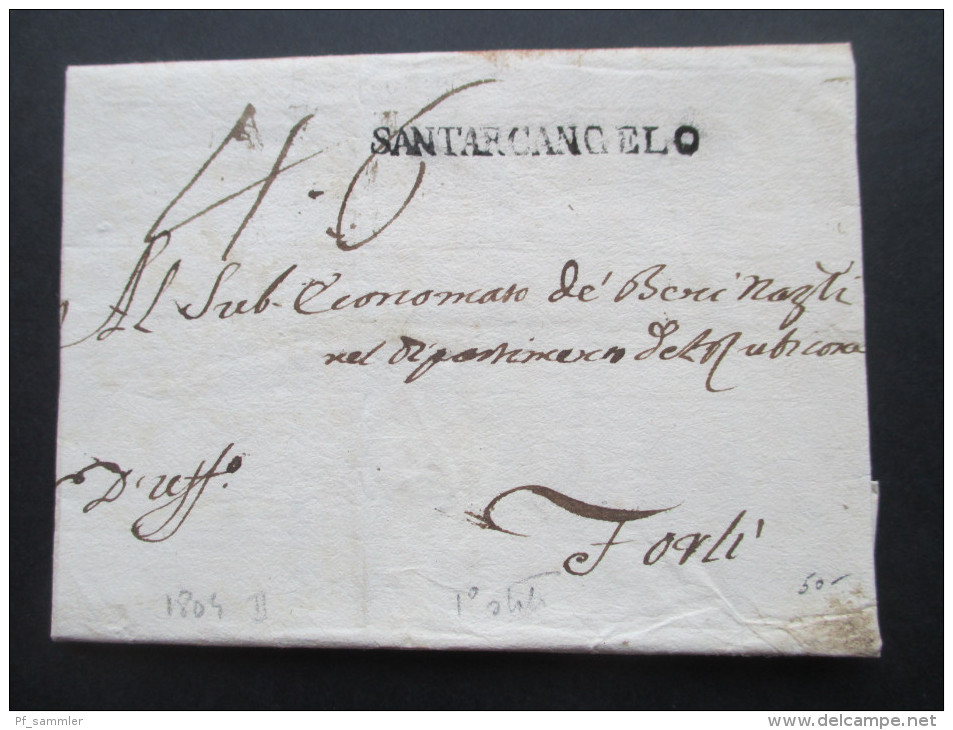 SANTARCANGELO
4.6
Al Sub-Economato de' Beni Nazli
nel Dipartimento del Rubicone
D'uff.o
Forlì
50-
1804 II
1°
Pf_sammler
www.delcampe.net